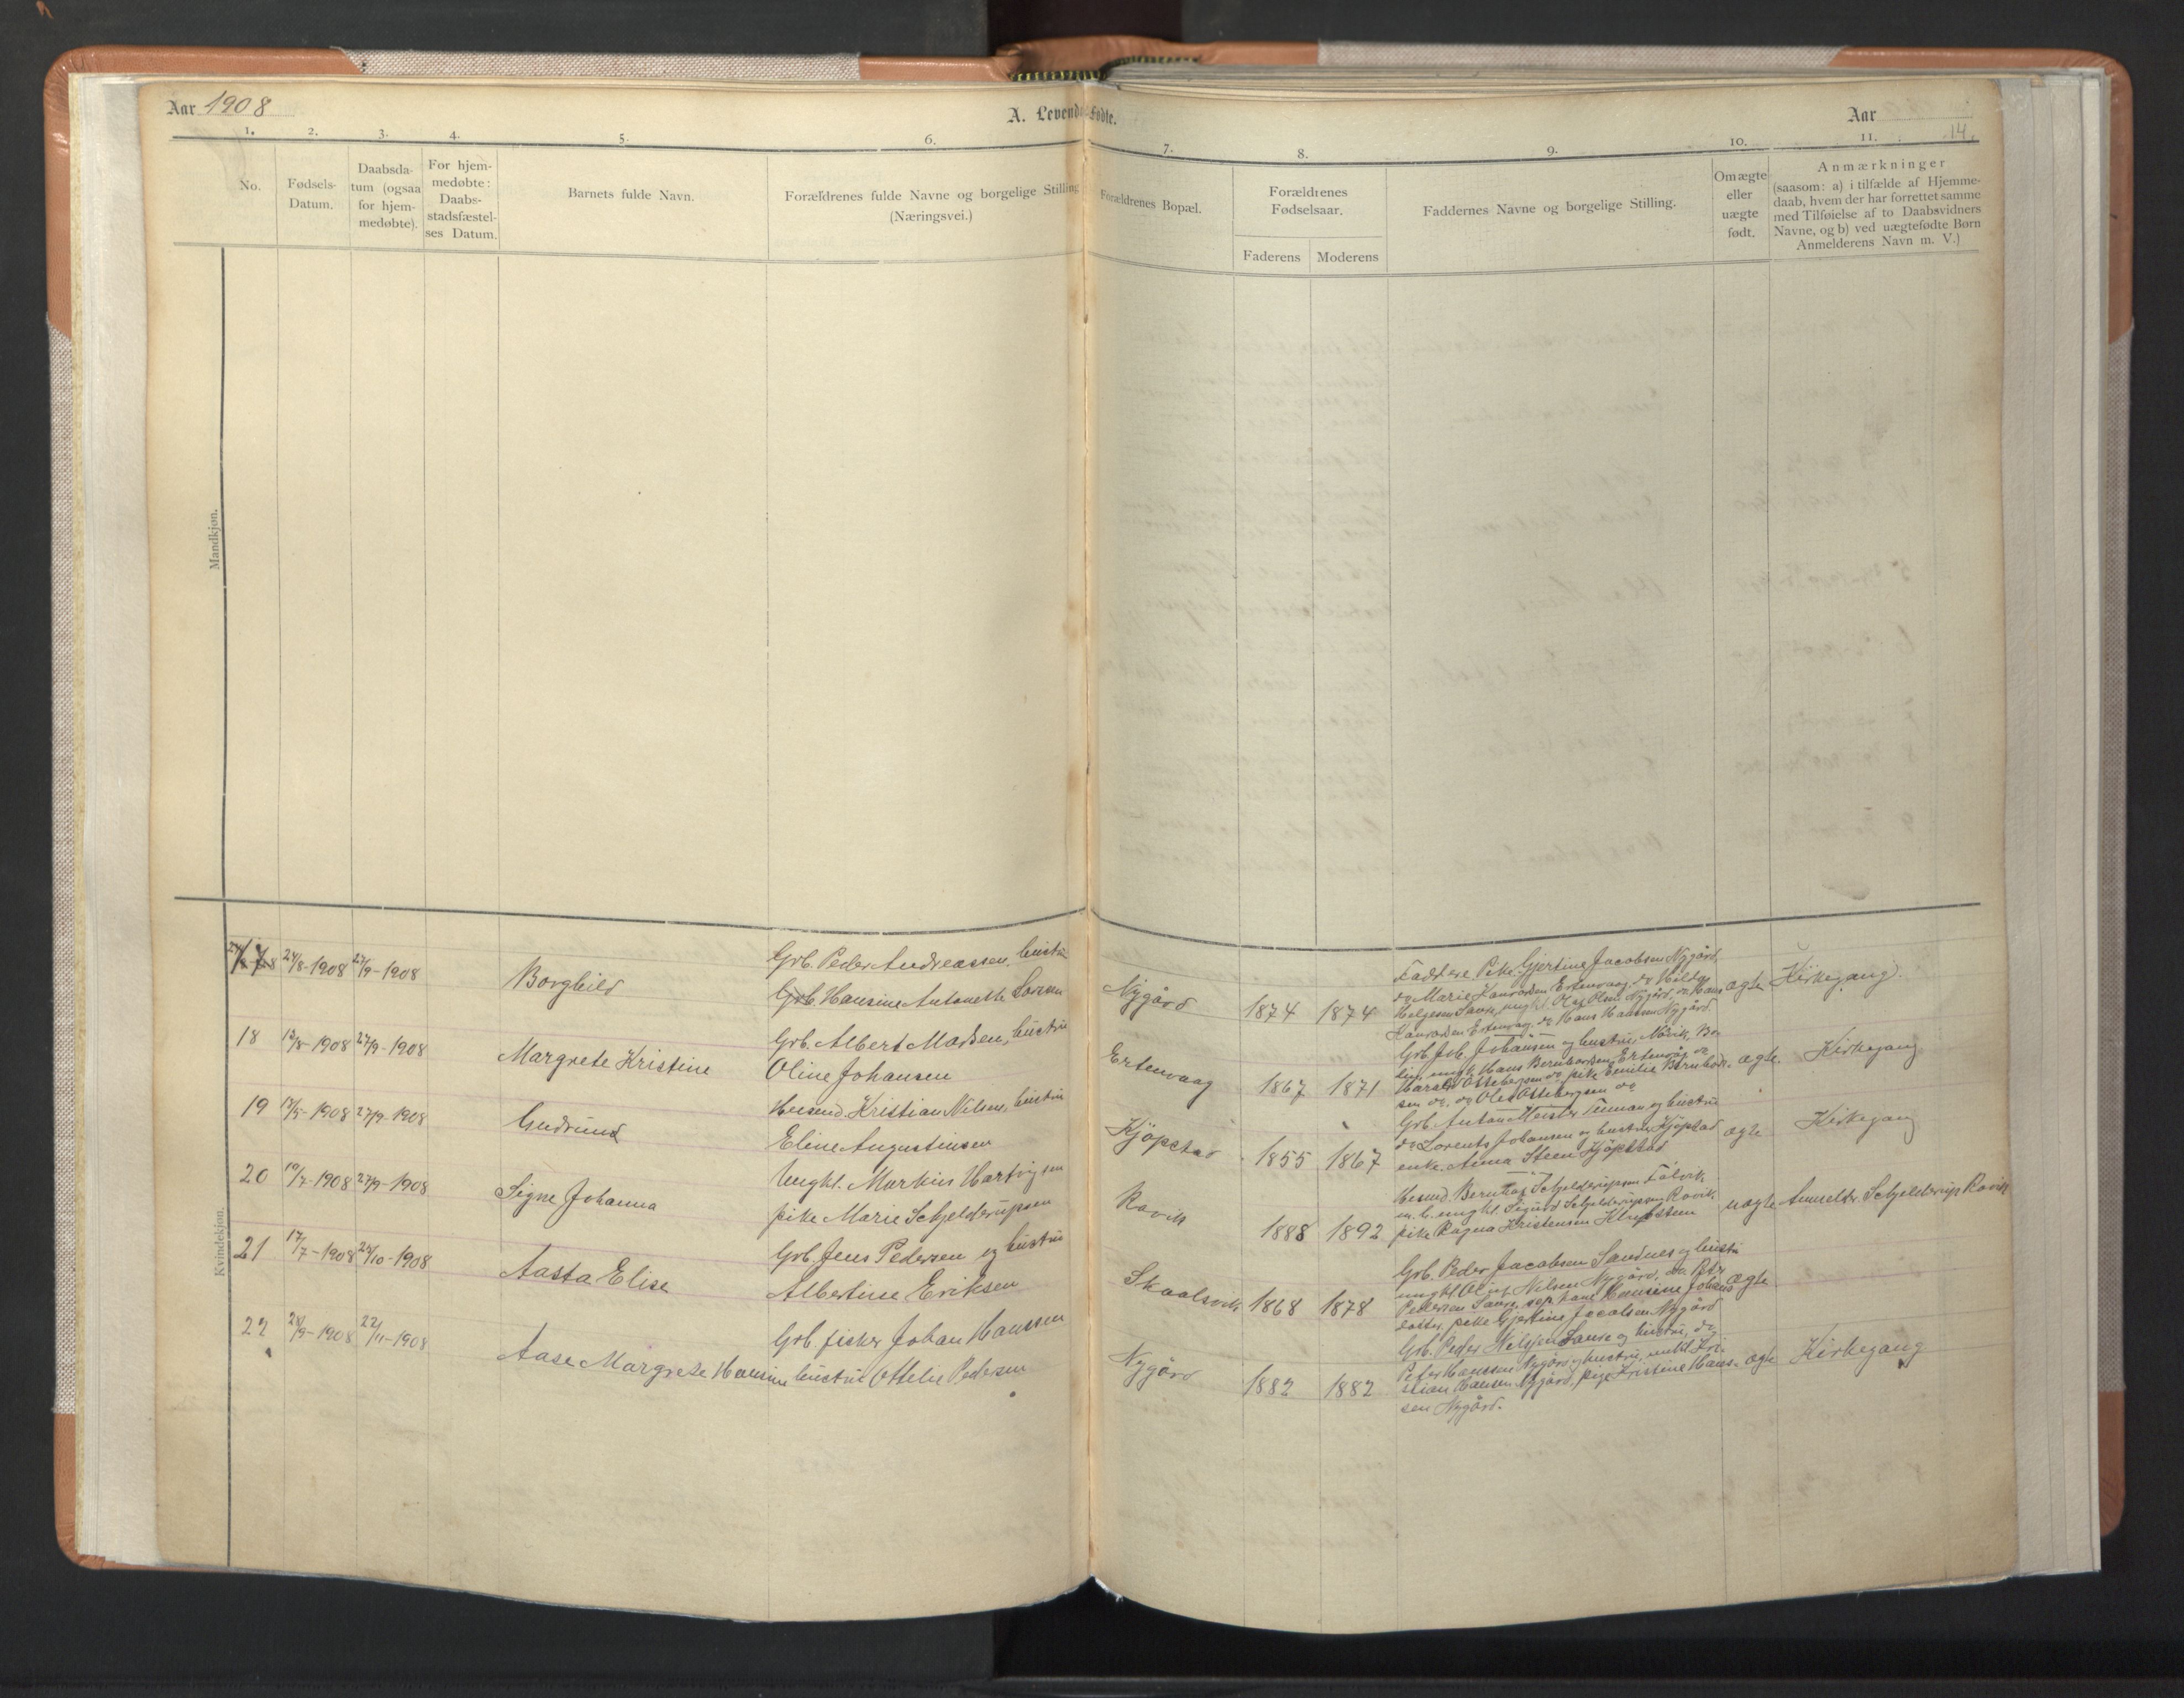 Aar 1908
A. Levende Fødte.
Aar
14.
1. 2. 3. 4. 5. 6. 7. 8. 9. 10. 11.
No.
Fødsels-
Datum.
Daabsda-
tum (ogsaa
for hjem-
medøbte).
For hjem-
medøbte:
Daabs-
stadsfæstel-
ses Datum.
Barnets fulde Navn.
Forældrenes fulde Navne og borgelige Stilling
(Næringsvei.)
Forældrenes Bopæl.
Forældrenes
Fødselsaar.
Faderens Moderens
Faddernes Navne og borgelige Stilling.
Om ægte
eller
uægte
født.
Anmærkninger
(saasom: a) i tilfælde af Hjemme-
daab, hvem der har forrettet samme
med Tilføielse af to Daabsvidners
Navne, og b) ved uægtefødte Børn
Anmelderens Navn m. V.)
Mandkjøn.
Kvindekjøn.
17 24/8-1908 27/9-1908
Borghild
Grb. Peder Andreassen, hustru
Grb. Hansine Antonette Larsen
Nygård 1874 1874
Faddere Pike Gjertine Jacobsen Nygård,
do Marie Hansen Ertenvaag, do Hilda
Helgesen Saura, ungk. Olaf Olsen Nygård, do Hans
Ertenvåg, do Hans Hansen Nygård.
ægte Kirkegang.
18 12/8-1908 27/9-1908
Margrete Kristine
Grb. Albert Madsen, hustru
Oline Johansen
Ertenvaag 1867 1871
Grb. Joh. Johansen og hustru, Növik, Ber
ungk Hans Bernhardsen Ertenvåg do
Harald Ottebergsen do, pike Emilie Bernhard-
sen do, do Oles Ottebergsen do
ægte. Kirkegang
19 17/5-1908 27/9-1908
Gudrund
Husmd. Kristian Nilsen, hustru
Eline Augustinsen
Kjöpstad 1855 1867
Grb. Anton Meister Tennan og hustru
do Lorents Johansen og hustru Kjöpstad
enke. Anna Steen Kjöpstad
ægte Kirkegang
20 19/7-1908 27/9-1908
Signe Johanna
Ungk. Markus Hartvigsen
pike Marie Schjelderupsen
Ravik 1888 1892
Husmd. Bernhar Schjelderupsen Falvik
m. h. ungk. Sigurd Schjelderupsen Ravik
pike Ragna Kristensen Klupsten
uægte Anmelder Schjelderup Ravik
21 17/7-1908 24/10-1908
Aasta Elise
Grb. Jens Pedersen og hustru
Albertine Eriksen
Skaalsvik 1868 1878
Grb. Peder Jacobsen Sandnes og hustru
ungk Oluf Nilsen Nygård, do Peter
Pedersen Saura, Hansine Johans
datter, pike Gjertine Jacobsen Nygård
ægte
22 28/9-1908 22/11-1908
Aase Margrete Hansine
Grb. fisker Johan Hanssen
hustru Ottelie Pedersen
Nygård 1882 1882
Grb. Peder Nilsen Saura og hustru, do
Peter Hanssen Nygård og hustru, unkl Kri-
stian Hansen Nygård, pige Kristine Hans-
sen Nygård.
ægte Kirkegang